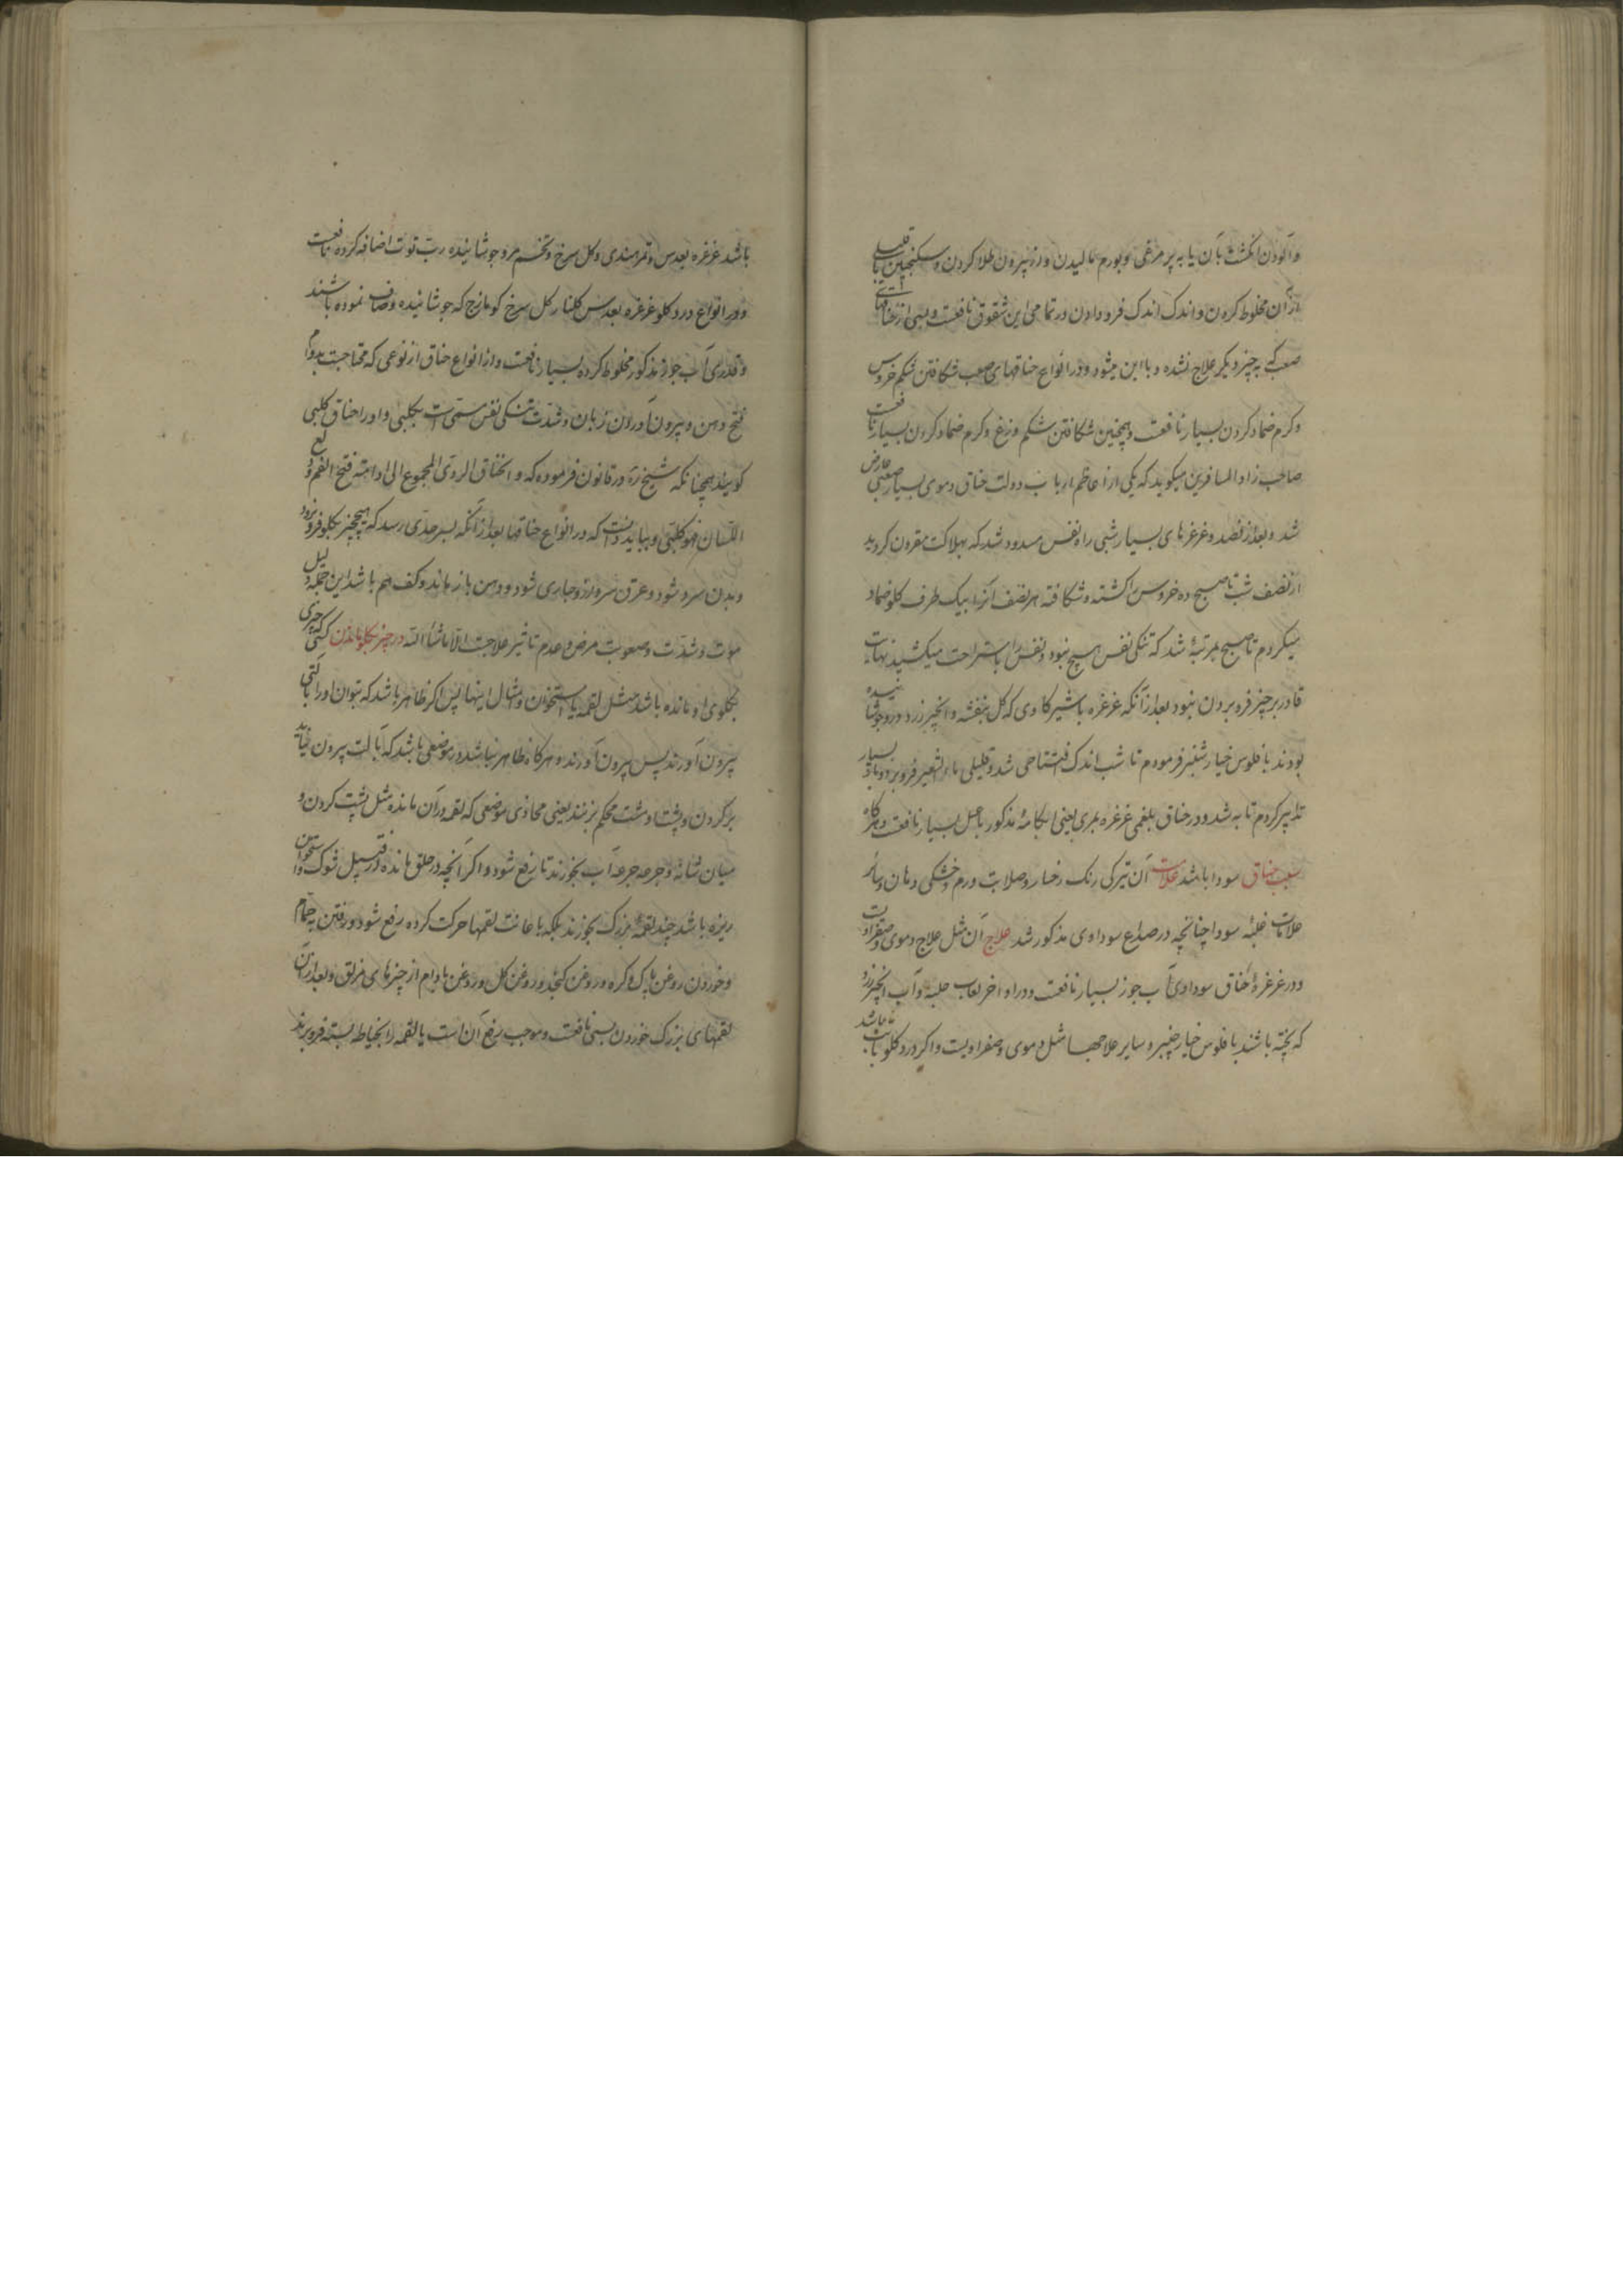 و آلودن انگشت بآن یا به پر مرغی و بورم مالیدن و از بیرون طلا کردن و سکنجبین با قلیلی
از آن مخلوط کردن و اندک اندک فرو دادن در تمامی این شقوق نافعست و بسی از خناقهای
صعب که به چیز دیگر علاج نشده و با این میشود و در انواع خناقهای صعب شکافتن شکم خروس
و گرم ضماد کردن بسیار نافعست و همچنین شکافتن شکم وزغ و گرم ضماد کردن بسیار نافعست
صاحب زاد المسافرین میگوید که یکی از اعاظم ارباب دولت خناق دموی بسیار صعبی عارض
شد و بعد از فصد و غرغرهای بسیار شبی راه نفس مسدود شد که بهلاکت مقرون گردید
از نصف شب تا صبح ده خروس کشته و شکافته هر نصف آنرا بیک طرف گلو ضماد
میکردم تا صبح بمرتبهٔ شد که تنگی نفس هیچ نبود و نفس را باستراحت میکشید نهایت
قادر بر چیز فرو بردن نبود بعد از آنکه غرغره باشیر گاوی که گل بنفشه و انجیر زرد درو جوشانیده
بودند با فلوس خیارشنبر فرمودم تا شب اندک انفتاحی شد و قلیلی ماء الشعیر فرو برد و باز بسیار
تدبیر کردم تا به شد و در خناق بلغمی غرغره بمری یعنی ابکامهٔ مذکور با عسل بسیار نافعست و هرگاه
سبب خناق سودا باشد علامت آن تیرگی رنگ رخسار و صلابت ورم و خشکی دهان و سائر
علامات غلبهٔ سودا چنانچه در صداع سوداوی مذکور شد علاج آن مثل علاج دموی و صفراویست
و در غرغرهٔ خناق سوداوی آب جوز بسیار نافعست و در اواخر لعاب حلبه و آب انجیر زرد
که پخته باشند با فلوس خیارچنبر و سایر علاجها مثل دموی و صفراویست و اگر درد گلو باشد
باشد غرغره بعدس و تمر هندی و گل سرخ و تخم مرو جوشانیده ربّ توت اضافه کرده نافعست
و در انواع درد گلو غرغره بعدس گلنار گل سرخ کزمازج که جوشانیده و صاف نموده باشند
و قدری آب جواز مذکور مخلوط کرده بسیار نافعست و از انواع خناق از نوعی که محتاجست بدوام
فتح دهن و بیرون آوردن زبان و شدّت تنگی نفس مسمّی است بکلبی و او را خناق کلبی
گویند همچنانکه شیخ ره در قانون فرموده که و الخناق الردی المجموع الی ادامته فتح الفم و دلع
اللسان فهو کلبی و بباید دانست که در انواع خناقها بعد از آنکه بسر حدّی رسد که هیچ چیز بگلو فرو نرود
و بدن سرد شود و عرق سرد از و جاری شود و دهن باز ماند و کف هم باشد این جمله دلیل
موت و شدّت و صعوبت مرض و عدم تاثیر علاجست الّا ماشاء الله در چیز بگلو ماندن کسی که چیزی
بگلوی او مانده باشد مثل لقمه یا استخوان و امثال اینها پس اگر ظاهر باشد که بتوان او را بآلتی
بیرون آورند پس بیرون آورند و هرگاه ظاهر نباشد در موضعی باشد که بآلت بیرون نیاید
بر گردن و پشت او مشت محکم بزنند یعنی محاذی موضعی که لقمه در آن مانده مثل پشت گردن و
میان شانه و جرعه جرعه آب بخورند تا رفع شود و اگر آنچه در حلق مانده از قبیل شوک و استخوان
ریزه باشد چند لقمهٔ بزرگ بخورند بلکه باعانت لقمها حرکت کرده رفع شود و رفتن به حمام
و خوردن روغن پاک و کره و روغن کنجد و روغن گل و روغن بادام از چیزهای مزلق و بعد از آن
لقمهای بزرگ خوردن بسی نافعست و موجب رفع آن است یا لقمه را بخیاطه بسته فرو برند